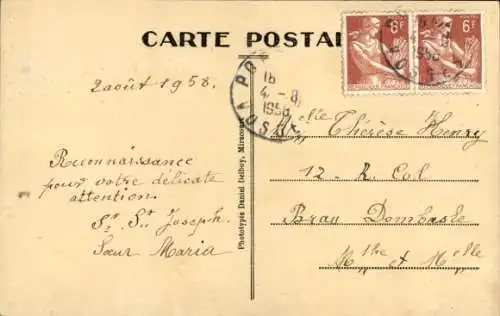 CARTE POSTAL
6F
6F
16
4 - 8
1958
VOSGES
2 août 1958.
Reconnaissance
pour votre délicate
attention.
Sr St Joseph.
Sœur Maria
Phototypie Daniel Delboy, Mirecourt
Melle Thérèse Henry
12 - R. Col
Bran Dombasle
Mthe et Melle